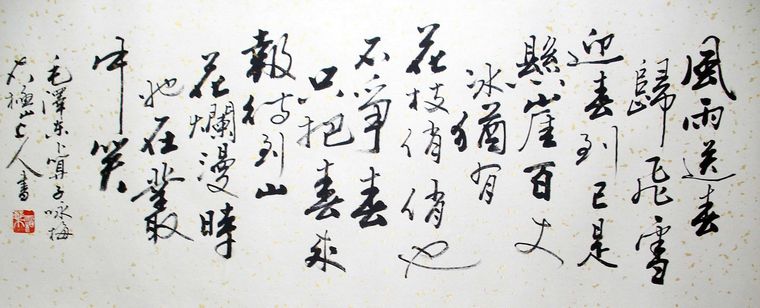 風雨送春
歸飛雪
迎春到已是
懸崖百丈
冰猶有
花枝俏俏也
不爭春
只把春來
報待到山
花爛漫時
她在叢
中笑
毛澤東卜算子咏梅
極山人書